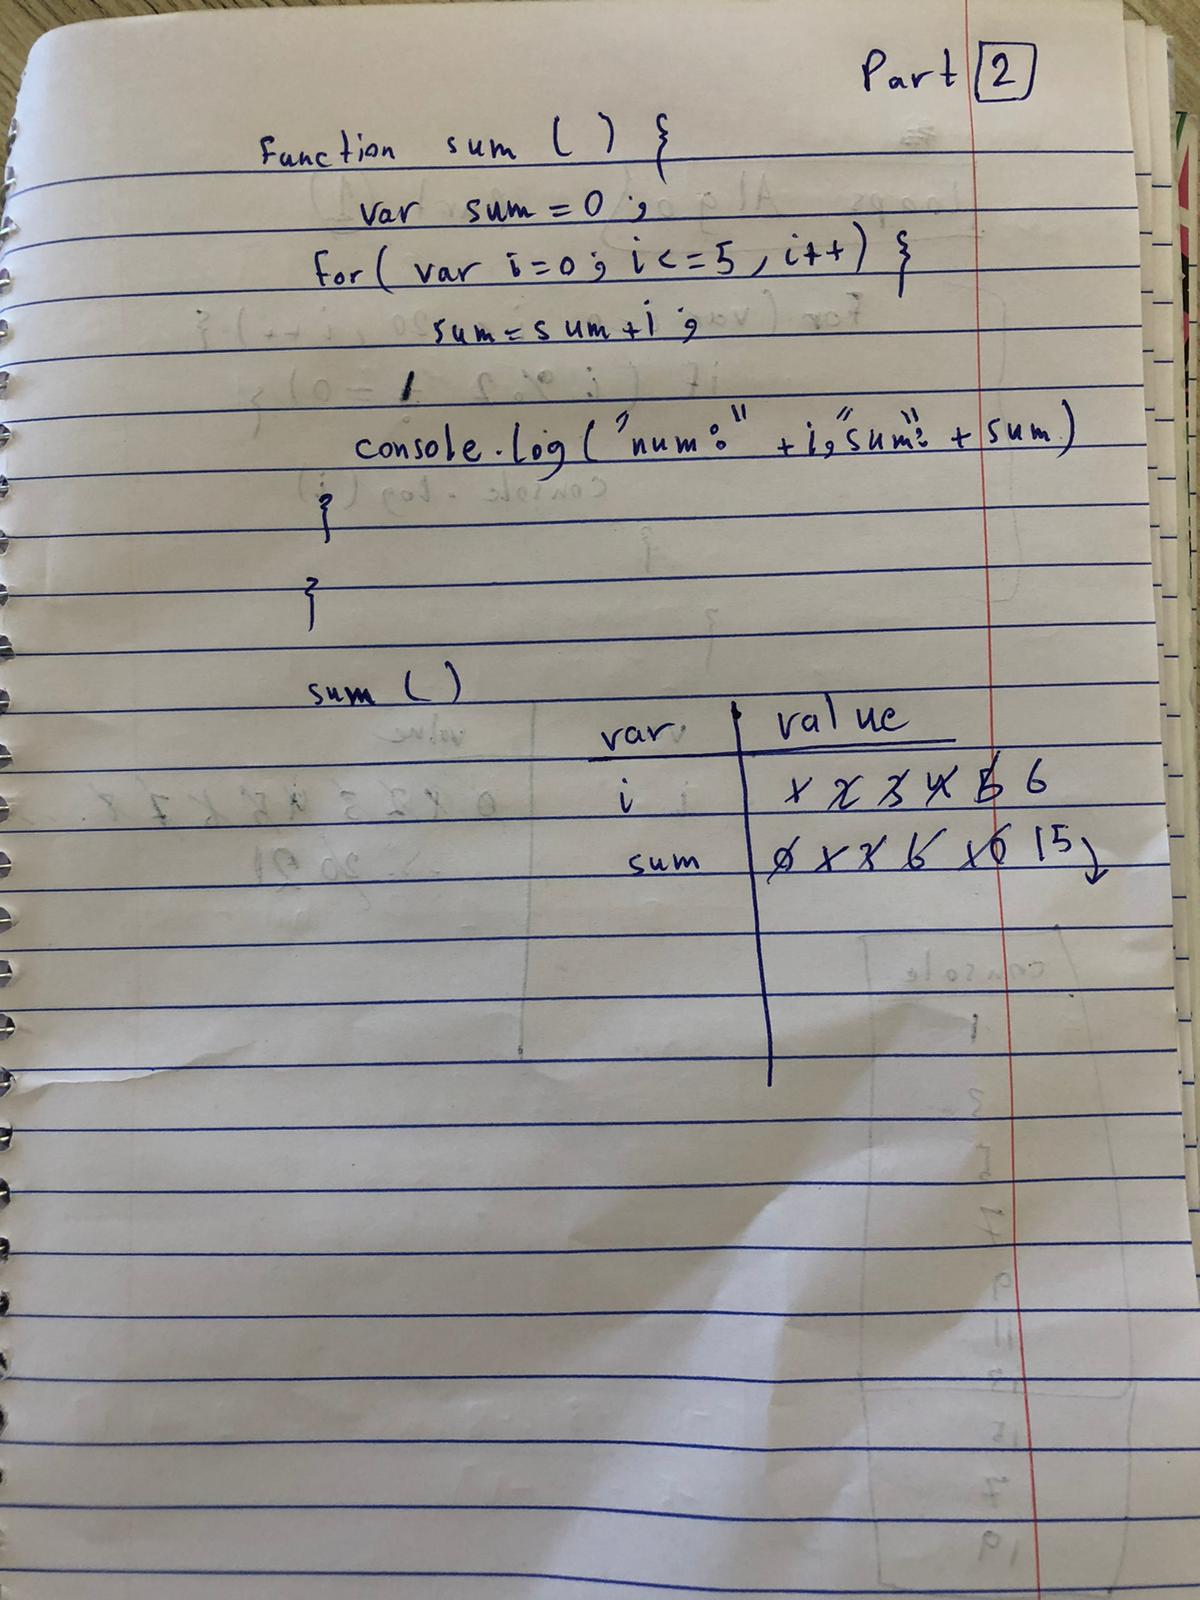 Part 2
Function sum ( ) {
var sum = 0 ;
For ( var i=0 ; i <= 5 , i++) {
sum = sum + i ;
console.log ( "num:" + i, "sum": + sum )
}
}
sum ( )
var value
i 1 2 3 4 5 6
sum 0 1 3 6 10 15